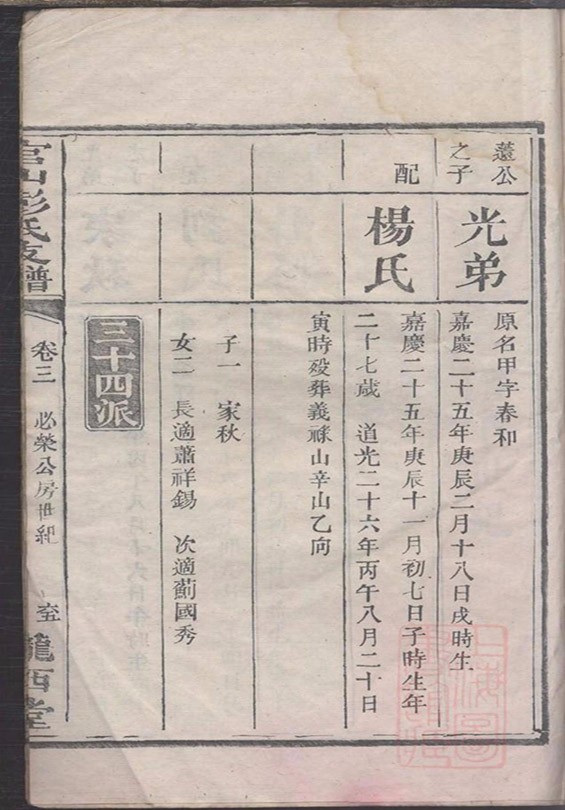 蓮公
之子
光弟
原名甲字春和
嘉慶二十五年庚辰二月十八日戌時生
配
楊氏
嘉慶二十五年庚辰十一月初七日子時生年
二十七歲 道光二十六年丙午八月二十日
寅時歿葬義祿山辛山乙向
子一 家秋
女二 長適蕭祥錫 次適薊國秀
三十四派
官山彭氏支譜
卷三 必榮公房世紀
隴西堂